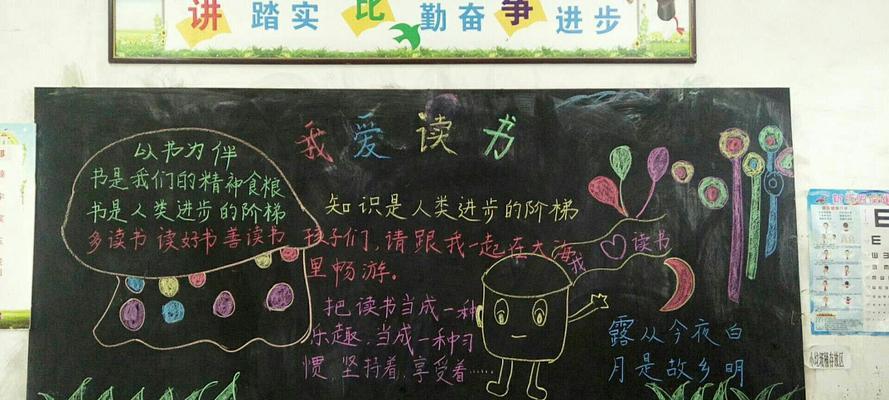 讲 踏实 比 勤奋 争 进步
我爱读书
以书为伴
书是我们的精神食粮
书是人类进步的阶梯
多读书 读好书 善读书
知识是人类进步的阶梯
孩子们,请跟我一起在大海
里畅游。
把读书当成一种
乐趣,当成一种习
惯,坚持着,享受着……
我♡读书
露从今夜白
月是故乡明